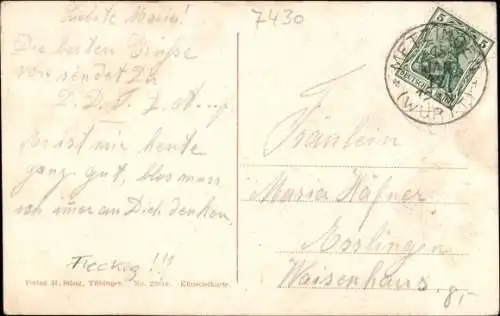 7430
Liebste Maria!
Die besten Grüße
von sendet Dir
Es ist mir heute
ganz gut, blos muss
ich imer an Dich denken,
Flecken!!!
Verlag H. Sting, Tübingen. No. Künstlerkarte.
5
METZINGEN
(WÜRTT.)
DEUTSCHES REICH
Fräulein
Maria Häfner
Esslingen
Waisenhaus.
8,-